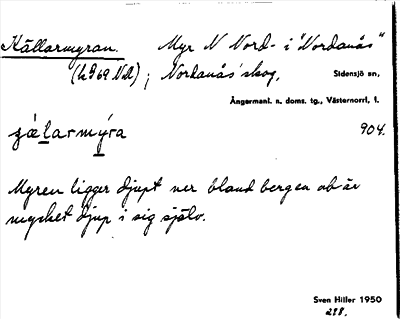 Källarmyran. Myr N Nord- i "Nordanås"
(h D 69 NÅ); Nordanås' skog, Sidensjö sn,
Ångermanl. n. doms. tg., Västernorrl. l.
904.
Myren ligger djupt ner bland bergen och är
mycket djup i sig själv.
Sven Hiller 1950
288.